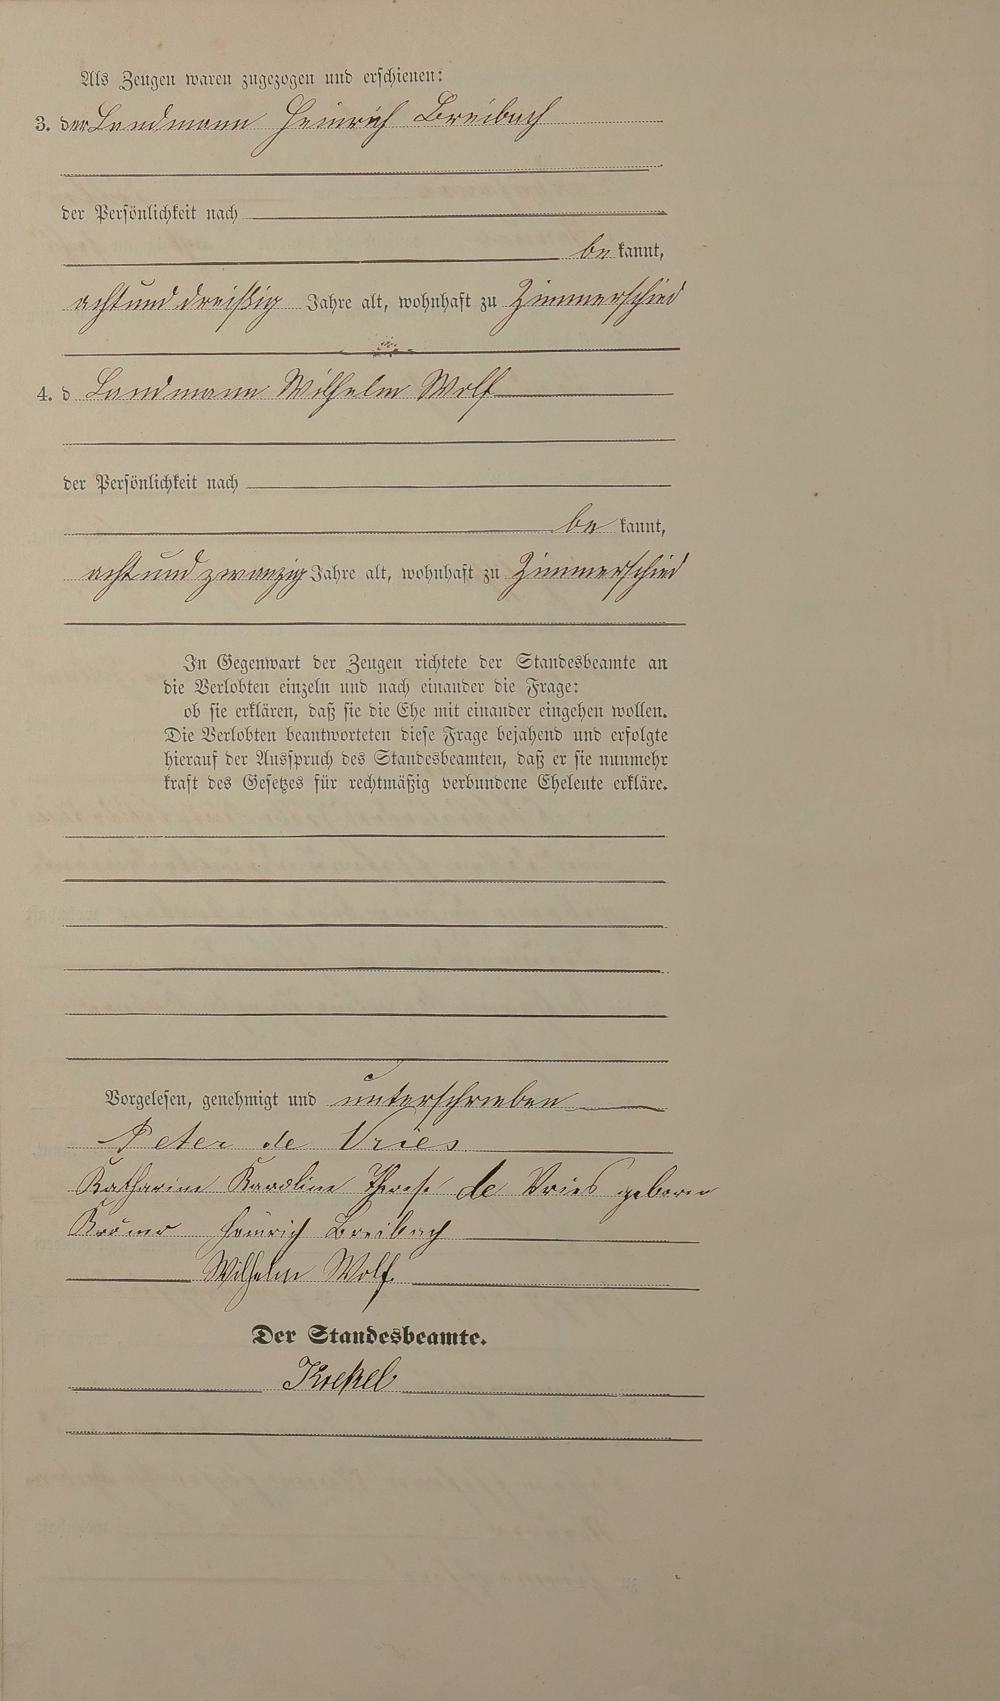 Als Zeugen waren zugezogen und erschienen:
3. der Landmann Heinrich Breibach
der Persönlichkeit nach
be kannt,
acht und dreißig Jahre alt, wohnhaft zu Zimmerschied
4. d Landmann Wilhelm Wolf
der Persönlichkeit nach
be kannt,
acht und zwanzig Jahre alt, wohnhaft zu Zimmerschied
In Gegenwart der Zeugen richtete der Standesbeamte an
die Verlobten einzeln und nach einander die Frage:
ob sie erklären, daß sie die Ehe mit einander eingehen wollen.
Die Verlobten beantworteten diese Frage bejahend und erfolgte
hierauf der Ausspruch des Standesbeamten, daß er sie nunmehr
kraft des Gesetzes für rechtmäßig verbundene Eheleute erkläre.
Vorgelesen, genehmigt und unterschrieben
Peter de Vries
Katharine Karoline Therese de Vries geboren
Heinrich Breibach
Wilhelm Wolf
Der Standesbeamte.